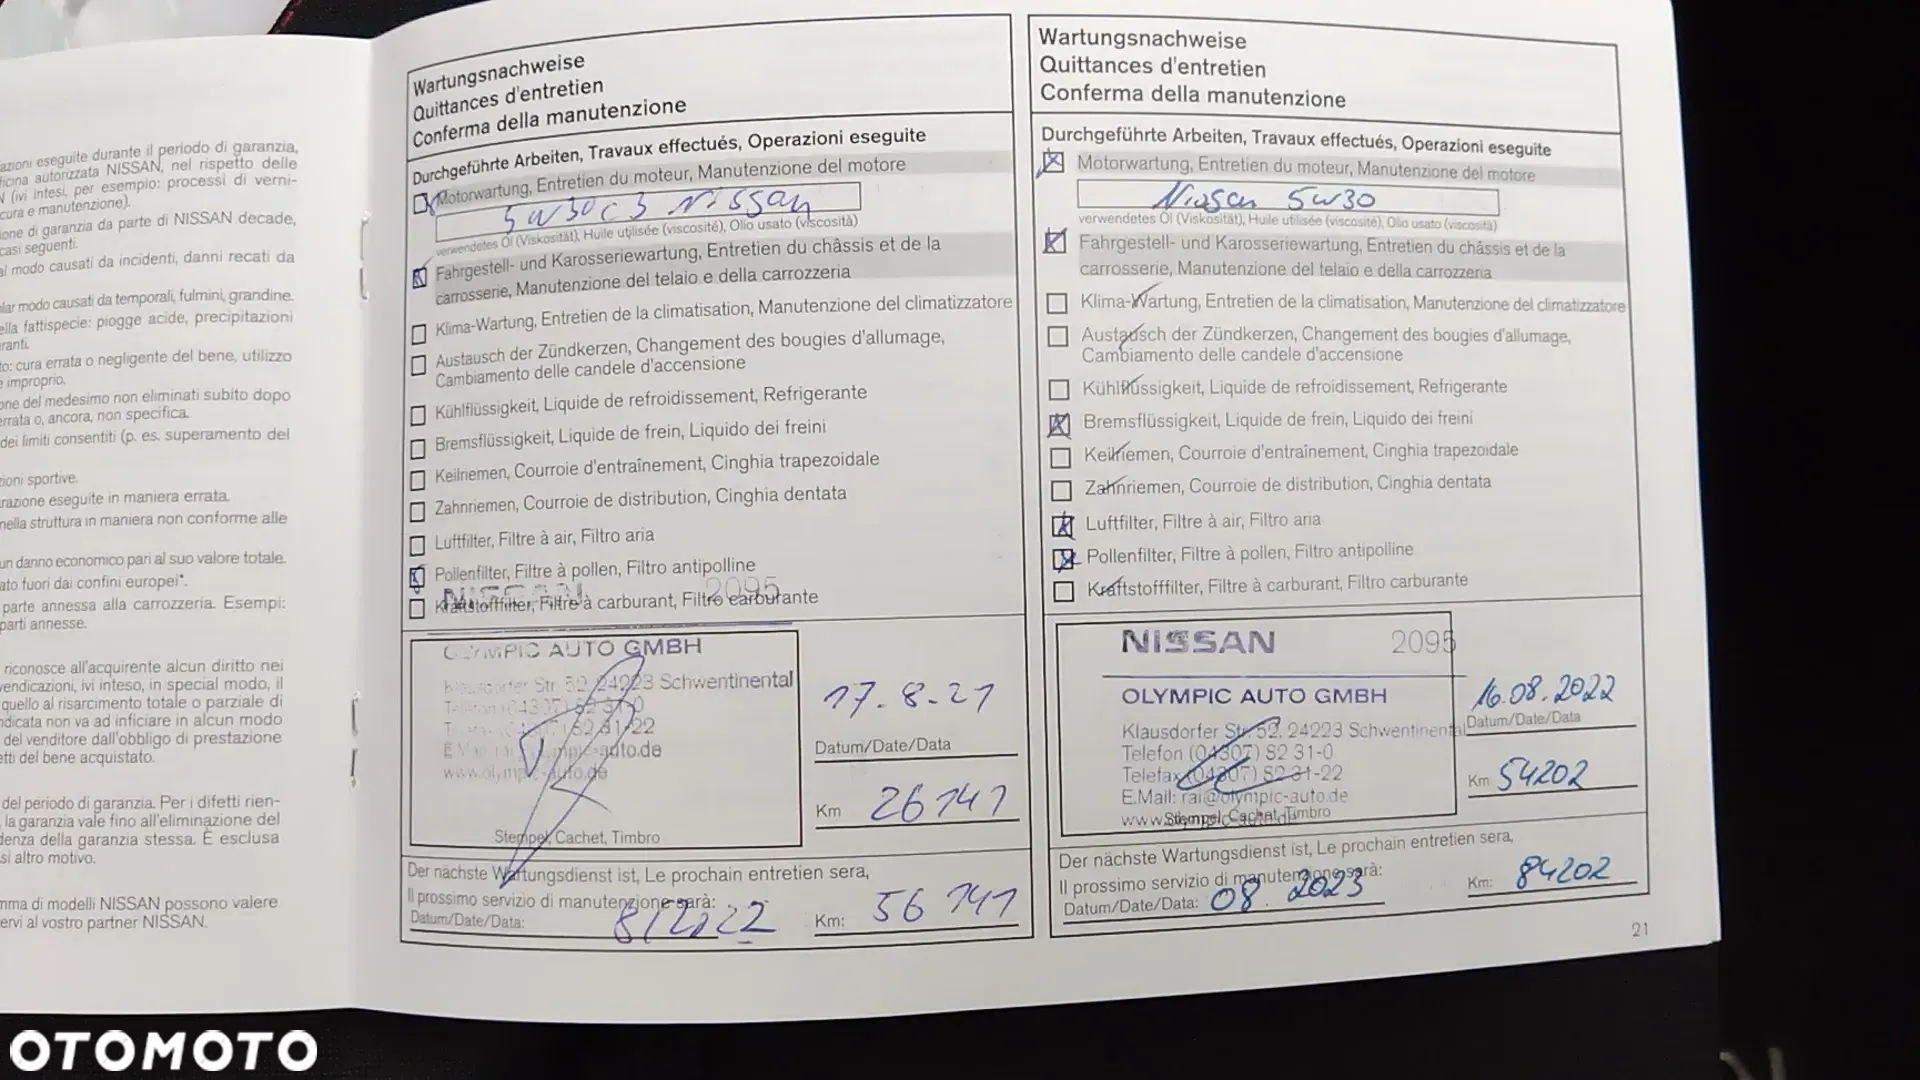 azioni eseguite durante il periodo di garanzia,
ficina autorizzata NISSAN, nel rispetto delle
N (ivi intesi, per esempio: processi di verni-
cura e manutenzione).
ione di garanzia da parte di NISSAN decade,
casi seguenti.
al modo causati da incidenti, danni recati da
lar modo causati da temporali, fulmini, grandine.
ella fattispecie: piogge acide, precipitazioni
ranti.
to: cura errata o negligente del bene, utilizzo
e improprio.
one del medesimo non eliminati subito dopo
errata o, ancora, non specifica.
dei limiti consentiti (p. es. superamento del
zioni sportive.
razione eseguite in maniera errata.
nella struttura in maniera non conforme alle
un danno economico pari al suo valore totale.
ato fuori dai confini europei*.
parte annessa alla carrozzeria. Esempi:
parti annesse.
riconosce all'acquirente alcun diritto nei
vendicazioni, ivi inteso, in special modo, il
quello al risarcimento totale o parziale di
ndicata non va ad inficiare in alcun modo
del venditore dall'obbligo di prestazione
etti del bene acquistato.
del periodo di garanzia. Per i difetti rien-
la garanzia vale fino all'eliminazione del
denza della garanzia stessa. È esclusa
si altro motivo.
mma di modelli NISSAN possono valere
ervi al vostro partner NISSAN.
Wartungsnachweise
Quittances d'entretien
Conferma della manutenzione
Durchgeführte Arbeiten, Travaux effectués, Operazioni eseguite
Motorwartung, Entretien du moteur, Manutenzione del motore
5W30 C3 Nissan
verwendetes Öl (Viskosität), Huile utilisée (viscosité), Olio usato (viscosità)
Fahrgestell- und Karosseriewartung, Entretien du châssis et de la
carrosserie, Manutenzione del telaio e della carrozzeria
Klima-Wartung, Entretien de la climatisation, Manutenzione del climatizzatore
Austausch der Zündkerzen, Changement des bougies d'allumage,
Cambiamento delle candele d'accensione
Kühlflüssigkeit, Liquide de refroidissement, Refrigerante
Bremsflüssigkeit, Liquide de frein, Liquido dei freini
Keilriemen, Courroie d'entraînement, Cinghia trapezoidale
Zahnriemen, Courroie de distribution, Cinghia dentata
Luftfilter, Filtre à air, Filtro aria
Pollenfilter, Filtre à pollen, Filtro antipolline
NISSAN 2095
Kraftstofffilter, Filtre à carburant, Filtro carburante
OLYMPIC AUTO GMBH
Klausdorfer Str. 52, 24223 Schwentinental
Telefon (04307) 82 31-0
Telefax (04307) 82 31-22
olympic-auto.de
www.olympic-auto.de
Stempel, Cachet, Timbro
17.8.21
Datum/Date/Data
Km 26141
Der nächste Wartungsdienst ist, Le prochain entretien sera,
Il prossimo servizio di manutenzione sarà:
Datum/Date/Data: 8/2022
Km: 56 141
Wartungsnachweise
Quittances d'entretien
Conferma della manutenzione
Durchgeführte Arbeiten, Travaux effectués, Operazioni eseguite
Motorwartung, Entretien du moteur, Manutenzione del motore
Nissan 5W30
verwendetes Öl (Viskosität), Huile utilisée (viscosité), Olio usato (viscosità)
Fahrgestell- und Karosseriewartung, Entretien du châssis et de la
carrosserie, Manutenzione del telaio e della carrozzeria
Klima-Wartung, Entretien de la climatisation, Manutenzione del climatizzatore
Austausch der Zündkerzen, Changement des bougies d'allumage,
Cambiamento delle candele d'accensione
Kühlflüssigkeit, Liquide de refroidissement, Refrigerante
Bremsflüssigkeit, Liquide de frein, Liquido dei freini
Keilriemen, Courroie d'entraînement, Cinghia trapezoidale
Zahnriemen, Courroie de distribution, Cinghia dentata
Luftfilter, Filtre à air, Filtro aria
Pollenfilter, Filtre à pollen, Filtro antipolline
Kraftstofffilter, Filtre à carburant, Filtro carburante
NISSAN 2095
OLYMPIC AUTO GMBH
Klausdorfer Str. 52, 24223 Schwentinental
Telefon (04307) 82 31-0
Telefax (04307) 82 31-22
E.Mail: rai@olympic-auto.de
www.olympic-auto.de
Stempel, Cachet, Timbro
16.08.2022
Datum/Date/Data
Km 54202
Der nächste Wartungsdienst ist, Le prochain entretien sera,
Il prossimo servizio di manutenzione sarà:
Datum/Date/Data: 08.2023
Km: 84202
21
OTOMOTO